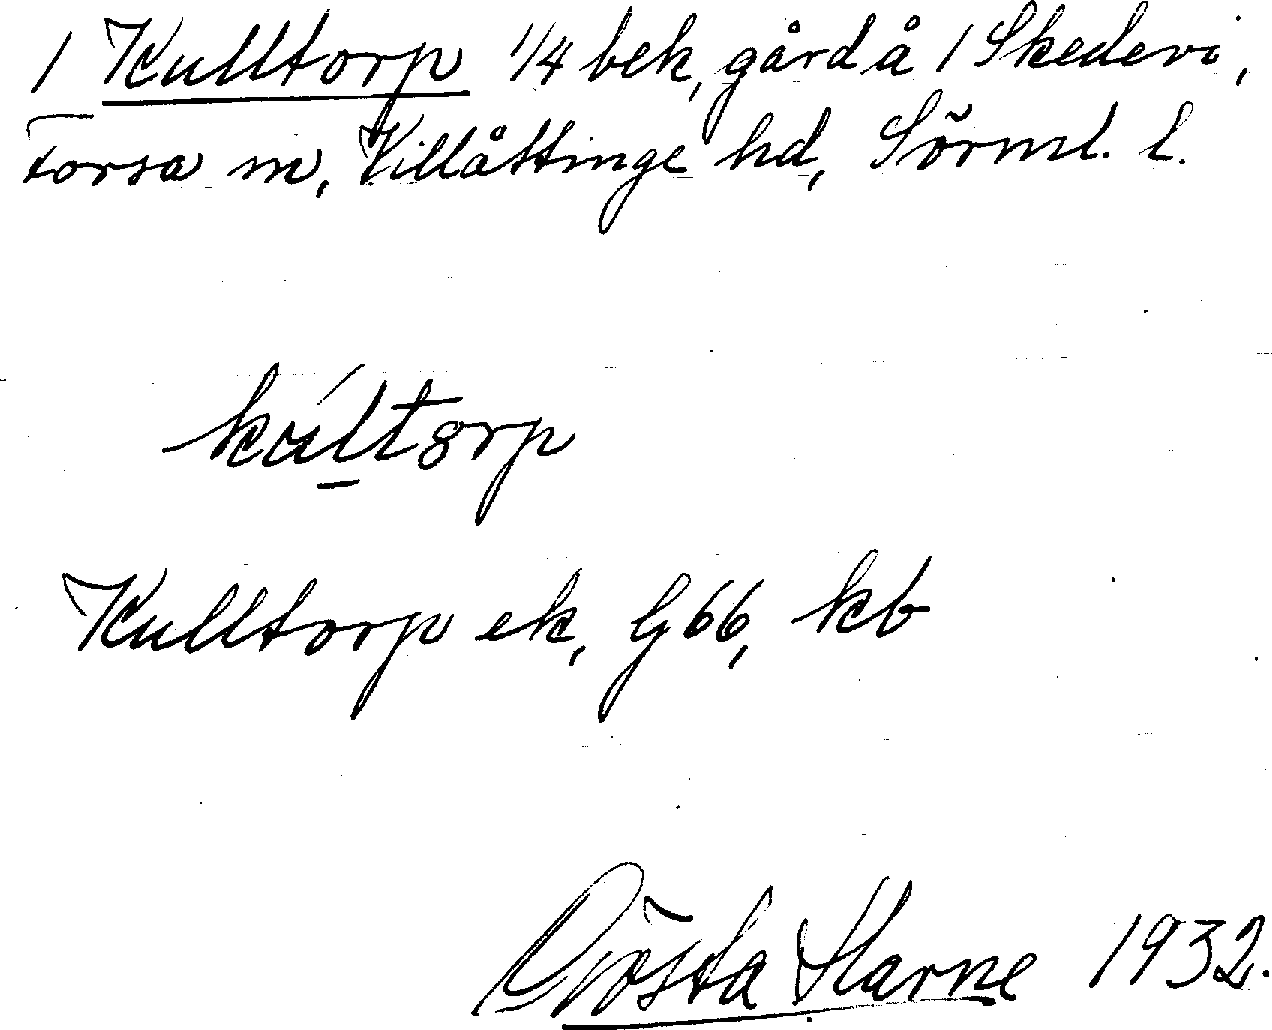 1 Kulltorp 1/4 bek, gård å 1 Skedevi,
Forsa sn, Villåttinge hd, Sörml. l.
kúltorp
Kulltorp ek, G66, kb
Gösta Harne 1932.